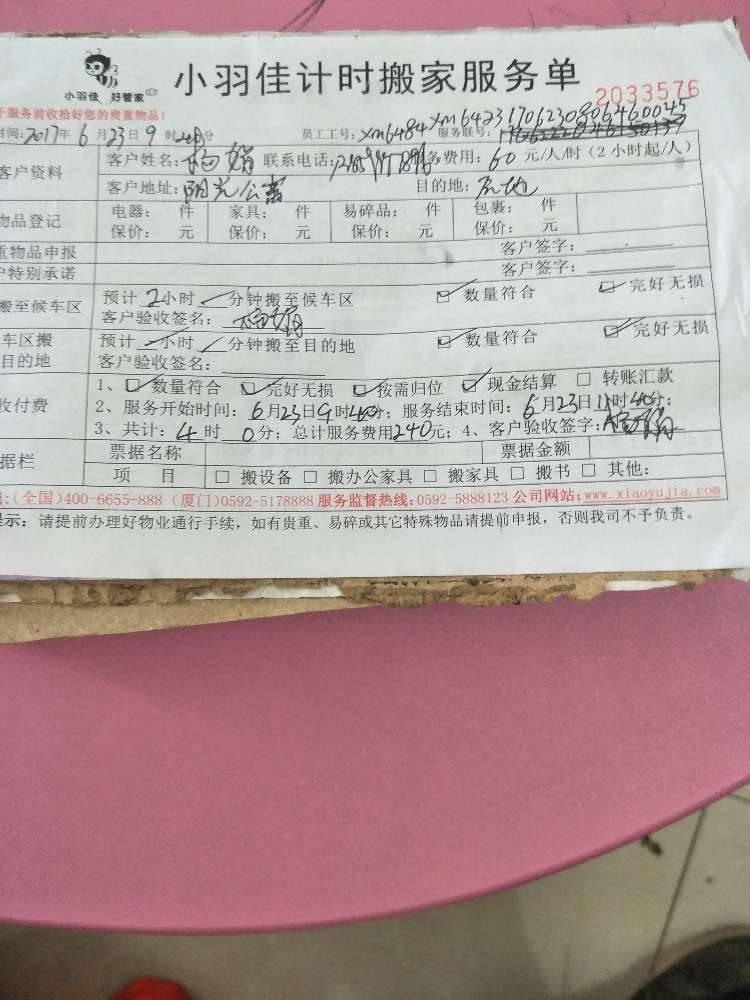 小羽佳 好管家
小羽佳计时搬家服务单
2033576
于服务前收拾好您的贵重物品!
时间: 2017年 6月 23日 9时 分 员工工号: xm6484 xm6423 服务联号: 1706230806460045
客户资料
客户姓名: 娟 联系电话: 服务费用: 60 元/人/时 (2小时起/人)
客户地址: 阳光公寓 目的地: 原地
物品登记
电器: 件 家具: 件 易碎品: 件 包裹: 件
保价: 元 保价: 元 保价: 元 保价: 元
重物品申报 客户签字:
户特别承诺 客户签字:
搬至候车区
预计 2小时 分钟搬至候车区 ☑ 数量符合 ☑ 完好无损
客户验收签名:
车区搬
目的地
预计 小时 分钟搬至目的地 ☑ 数量符合 ☑ 完好无损
客户验收签名:
收付费
1、☑ 数量符合 ☑ 完好无损 ☑ 按需归位 ☑ 现金结算 □ 转账汇款
2、服务开始时间: 6月23日9时40分; 服务结束时间: 6月23日11时40分;
3、共计: 4时 0分; 总计服务费用240元; 4、客户验收签字:
据栏
票据名称 票据金额
项 目 □ 搬设备 □ 搬办公家具 □ 搬家具 □ 搬书 □ 其他:
(全国)400-6655-888 (厦门)0592-5178888 服务监督热线:0592-5888123 公司网站:www.xiaoyujia.com
提示: 请提前办理好物业通行手续, 如有贵重、易碎或其它特殊物品请提前申报, 否则我司不予负责。